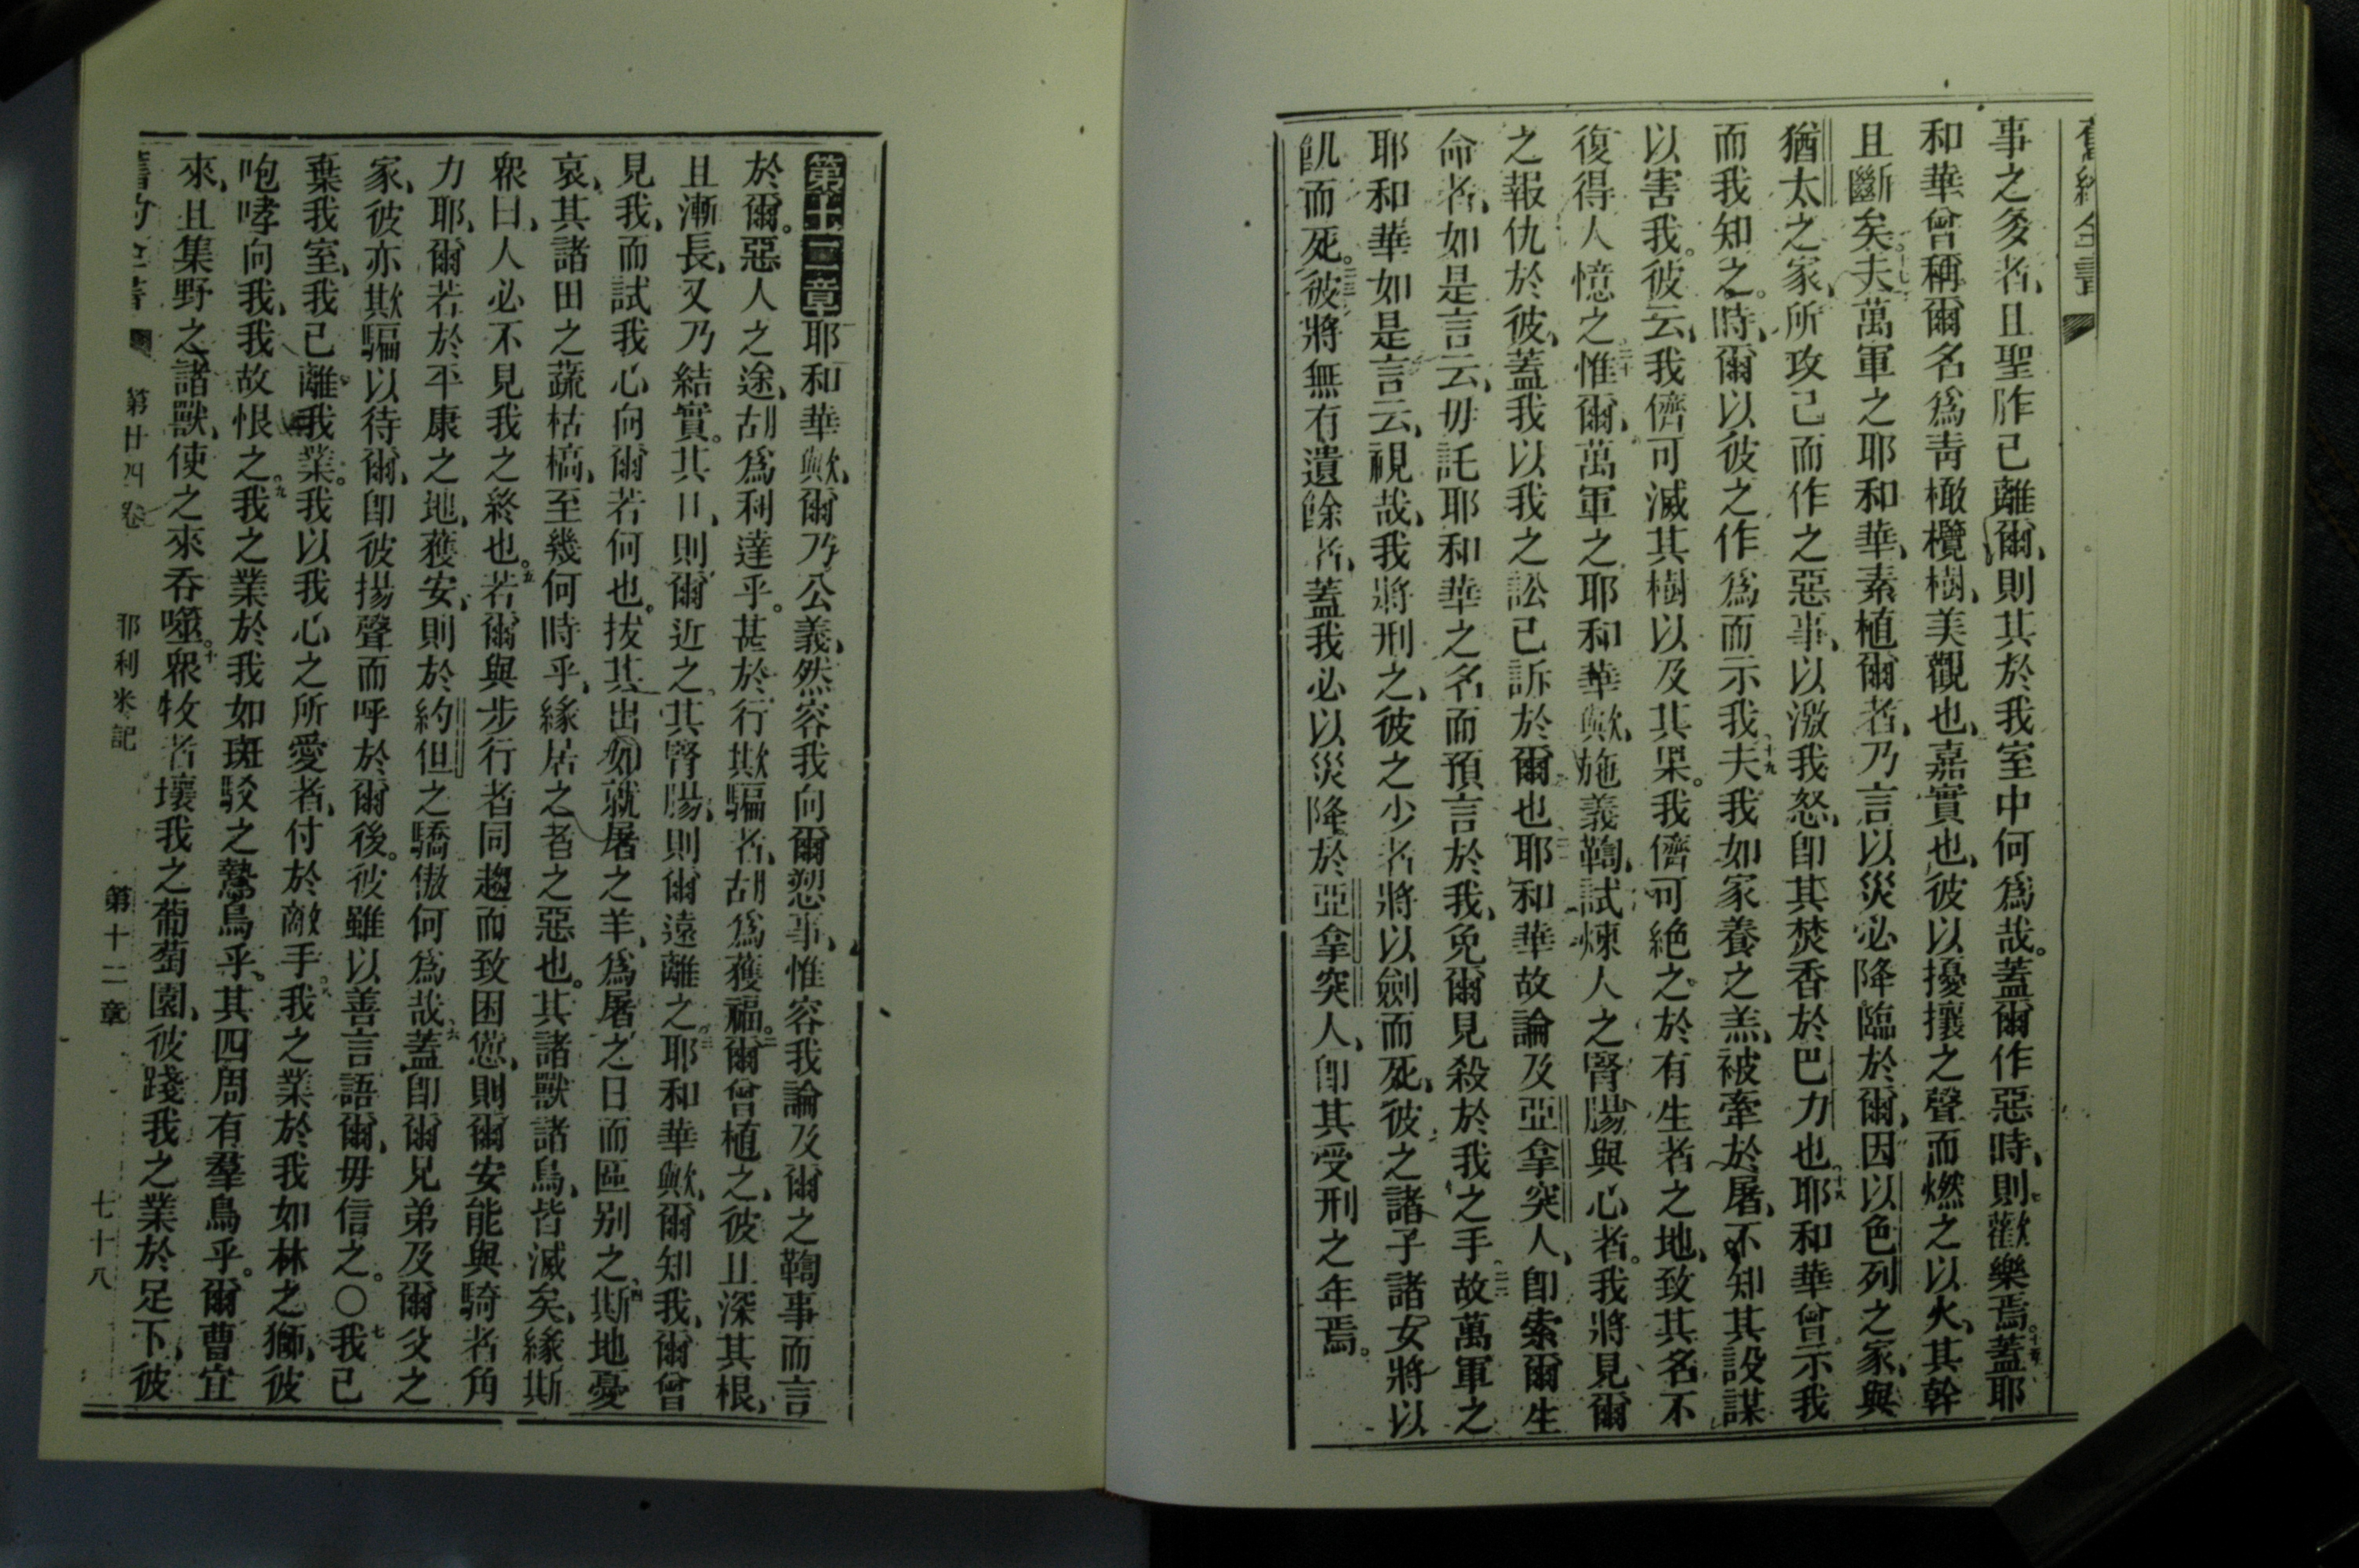 舊約全書
事之多者、且聖胙已離爾、則其於我室中何爲哉。蓋爾作惡時、則歡樂焉。十六蓋耶
和華曾稱爾名爲靑橄欖樹、美觀也、嘉實也、彼以擾攘之聲而燃之以火、其幹
且斷矣。十七夫萬軍之耶和華、素植爾者、乃言以災必降臨於爾、因以色列之家、與
猶太之家、所攻己而作之惡事、以激我怒、卽其焚香於巴力也。十八耶和華曾示我
而我知之。時、爾以彼之作爲而示我。十九夫我如家養之羔、被牽於屠、不知其設謀
以害我。彼云、我儕可滅其樹以及其果。我儕可絕之於有生者之地、致其名不
復得人憶之。二十惟爾、萬軍之耶和華歟、施義鞫、試煉人之腎腸與心者。我將見爾
之報仇於彼、蓋我以我之訟已訴於爾也。二一耶和華故論及亞拿突人、卽索爾生
命者、如是言云、毋託耶和華之名而預言於我、免爾見殺於我之手。二二故萬軍之
耶和華如是言云、視哉、我將刑之、彼之少者將以劍而死、彼之諸子諸女將以
飢而死。二三彼將無有遺餘者、蓋我必以災降於亞拿突人、卽其受刑之年焉。
第十二章耶和華歟、爾乃公義、然容我向爾愬事、惟容我論及爾之鞫事而言
於爾。惡人之途、胡爲利達乎。甚於行欺騙者、胡爲獲福。二爾曾植之、彼且深其根、
且漸長、又乃結實。其口、則爾近之、其腎腸、則爾遠離之。三耶和華歟、爾知我、爾曾
見我、而試我心向爾若何也。拔其出如就屠之羊、爲屠之日而區别之。四斯地憂
哀、其諸田之蔬枯槁、至幾何時乎、緣居之者之惡也。其諸獸諸鳥、皆滅矣、緣斯
衆曰、人必不見我之終也。五若爾與步行者同趨而致困憊、則爾安能與騎者角
力耶、爾若於平康之地、獲安、則於約但之驕傲何爲哉。六蓋卽爾兄弟及爾父之
家、彼亦欺騙以待爾、卽彼揚聲而呼於爾後。彼雖以善言語爾、毋信之。〇七我已
棄我室、我已離我業。我以我心之所愛者、付於敵手。八我之業於我如林之獅、彼
咆哮向我、我故恨之。九我之業於我如斑駁之鷙鳥乎。其四周有羣鳥乎。爾曹宜
來、且集野之諸獸、使之來吞噬。十衆牧者壞我之葡萄園、彼踐我之業於足下、彼
舊約全書 第廿四卷 耶利米記 第十二章 七十八